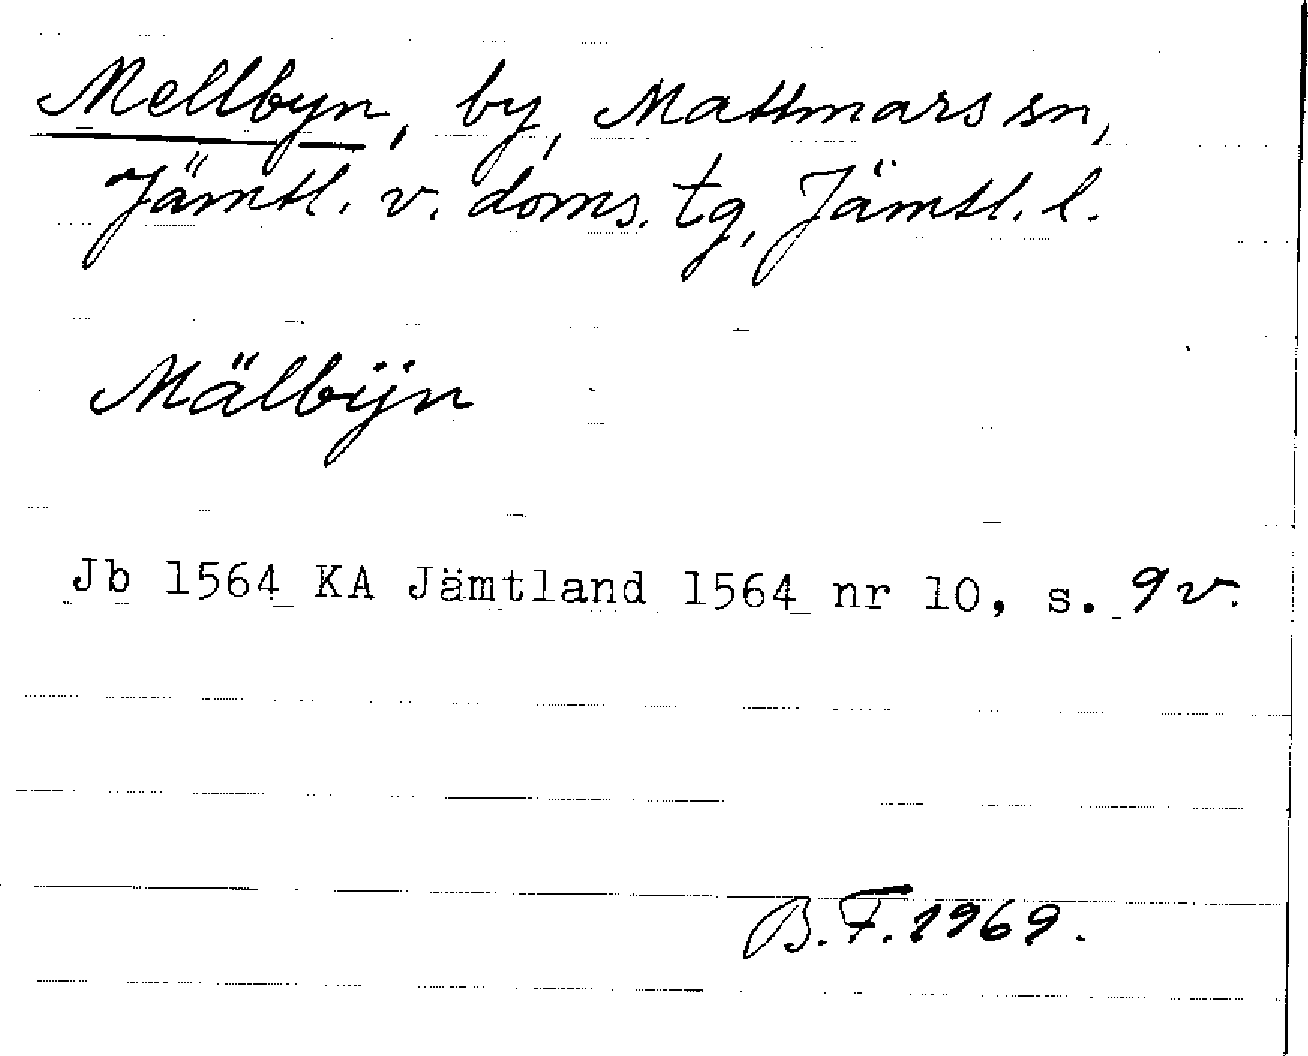 Mellbyn, by, Mattmars sn,
Jämtl. v. doms. tg, Jämtl. l.
Mälbÿn
Jb 1564 KA Jämtland 1564 nr 10, s. 9v.
B.F. 1969.